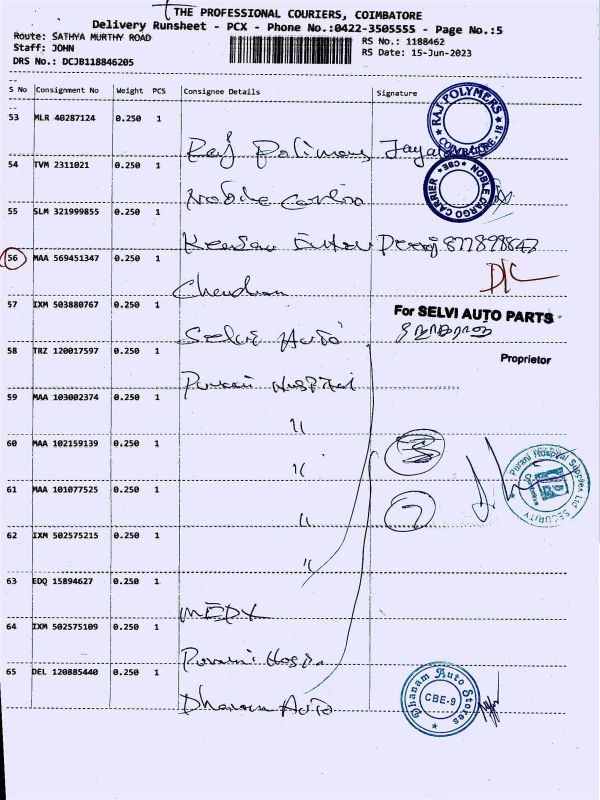 THE PROFESSIONAL COURIERS, COIMBATORE
Delivery Runsheet - PCX - Phone No.:0422-3505555 - Page No.:5
Route: SATHYA MURTHY ROAD
RS No.: 1188462
Staff: JOHN
RS Date: 15-Jun-2023
DRS No.: DCJB118846205
S No Consignment No Weight PCS Consignee Details Signature
53 MLR 40287124 0.250 1
RAJ POLYMERS COIMBATORE - 18
54 TVM 2311021 0.250 1
NOBLE CARGO CARRIER CBE
55 SLM 321999855 0.250 1
56 MAA 569451347 0.250 1
Chendran
57 IXM 503880767 0.250 1
For SELVI AUTO PARTS
Selvi Auto
Proprietor
58 TRZ 120017597 0.250 1
Purani Hospital
59 MAA 103002374 0.250 1
"
60 MAA 102159139 0.250 1
"
Purani Hospital Supplies Ltd SECURITY
61 MAA 101077525 0.250 1
7
"
62 IXM 502575215 0.250 1
"
63 EDQ 15894627 0.250 1
MEDX
64 IXM 502575109 0.250 1
Purani Hosp
65 DEL 120885440 0.250 1
Dhanam Auto
Dhanam Auto Stores CBE-9